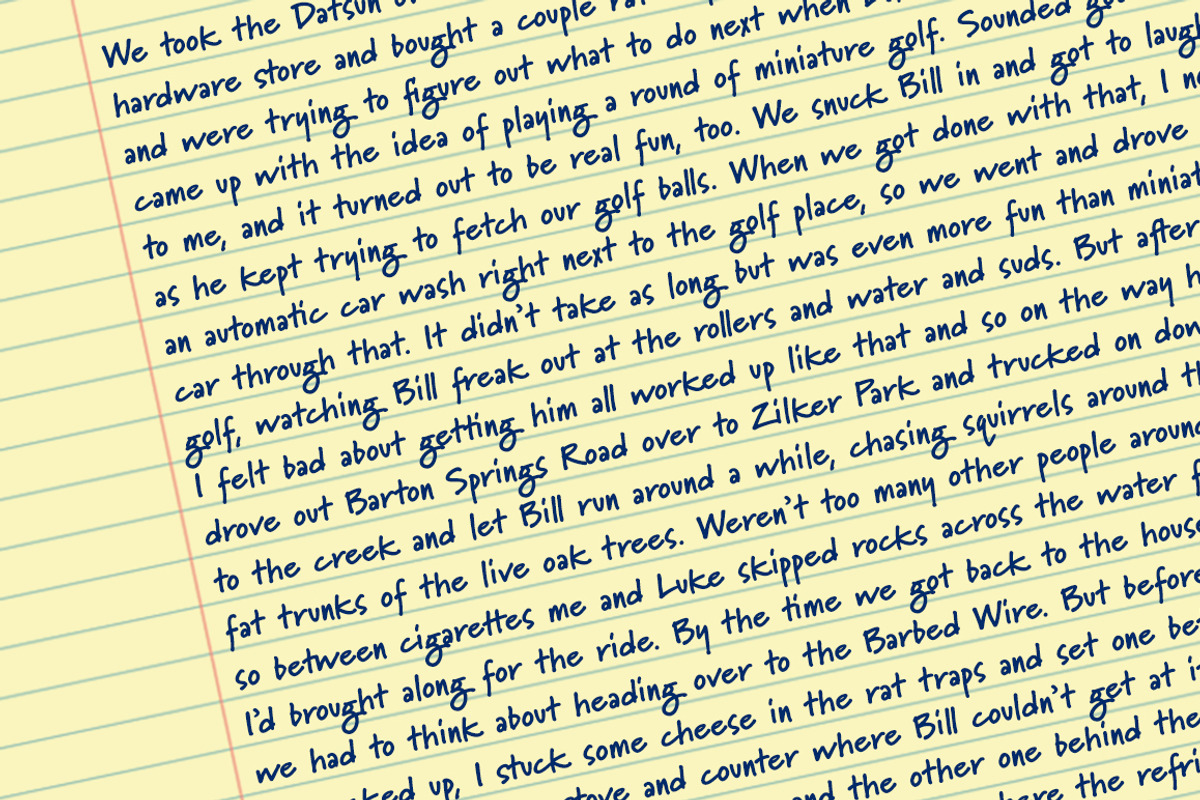 We took the Datsun
hardware store and bought a couple
and were trying to figure out what to do next when
came up with the idea of playing a round of miniature golf. Sounded
to me, and it turned out to be real fun, too. We snuck Bill in and got to laugh
as he kept trying to fetch our golf balls. When we got done with that, I
an automatic car wash right next to the golf place, so we went and drove
car through that. It didn't take as long but was even more fun than
golf, watching Bill freak out at the rollers and water and suds. But after
I felt bad about getting him all worked up like that and so on the way
drove out Barton Springs Road over to Zilker Park and trucked on
to the creek and let Bill run around a while, chasing squirrels around
fat trunks of the live oak trees. Weren't too many other people
so between cigarettes me and Luke skipped rocks across the water
I'd brought along for the ride. By the time we got back to the house
we had to think about heading over to the Barbed Wire. But before
up, I stuck some cheese in the rat traps and set one
and counter where Bill couldn't get at
and the other one behind the
the